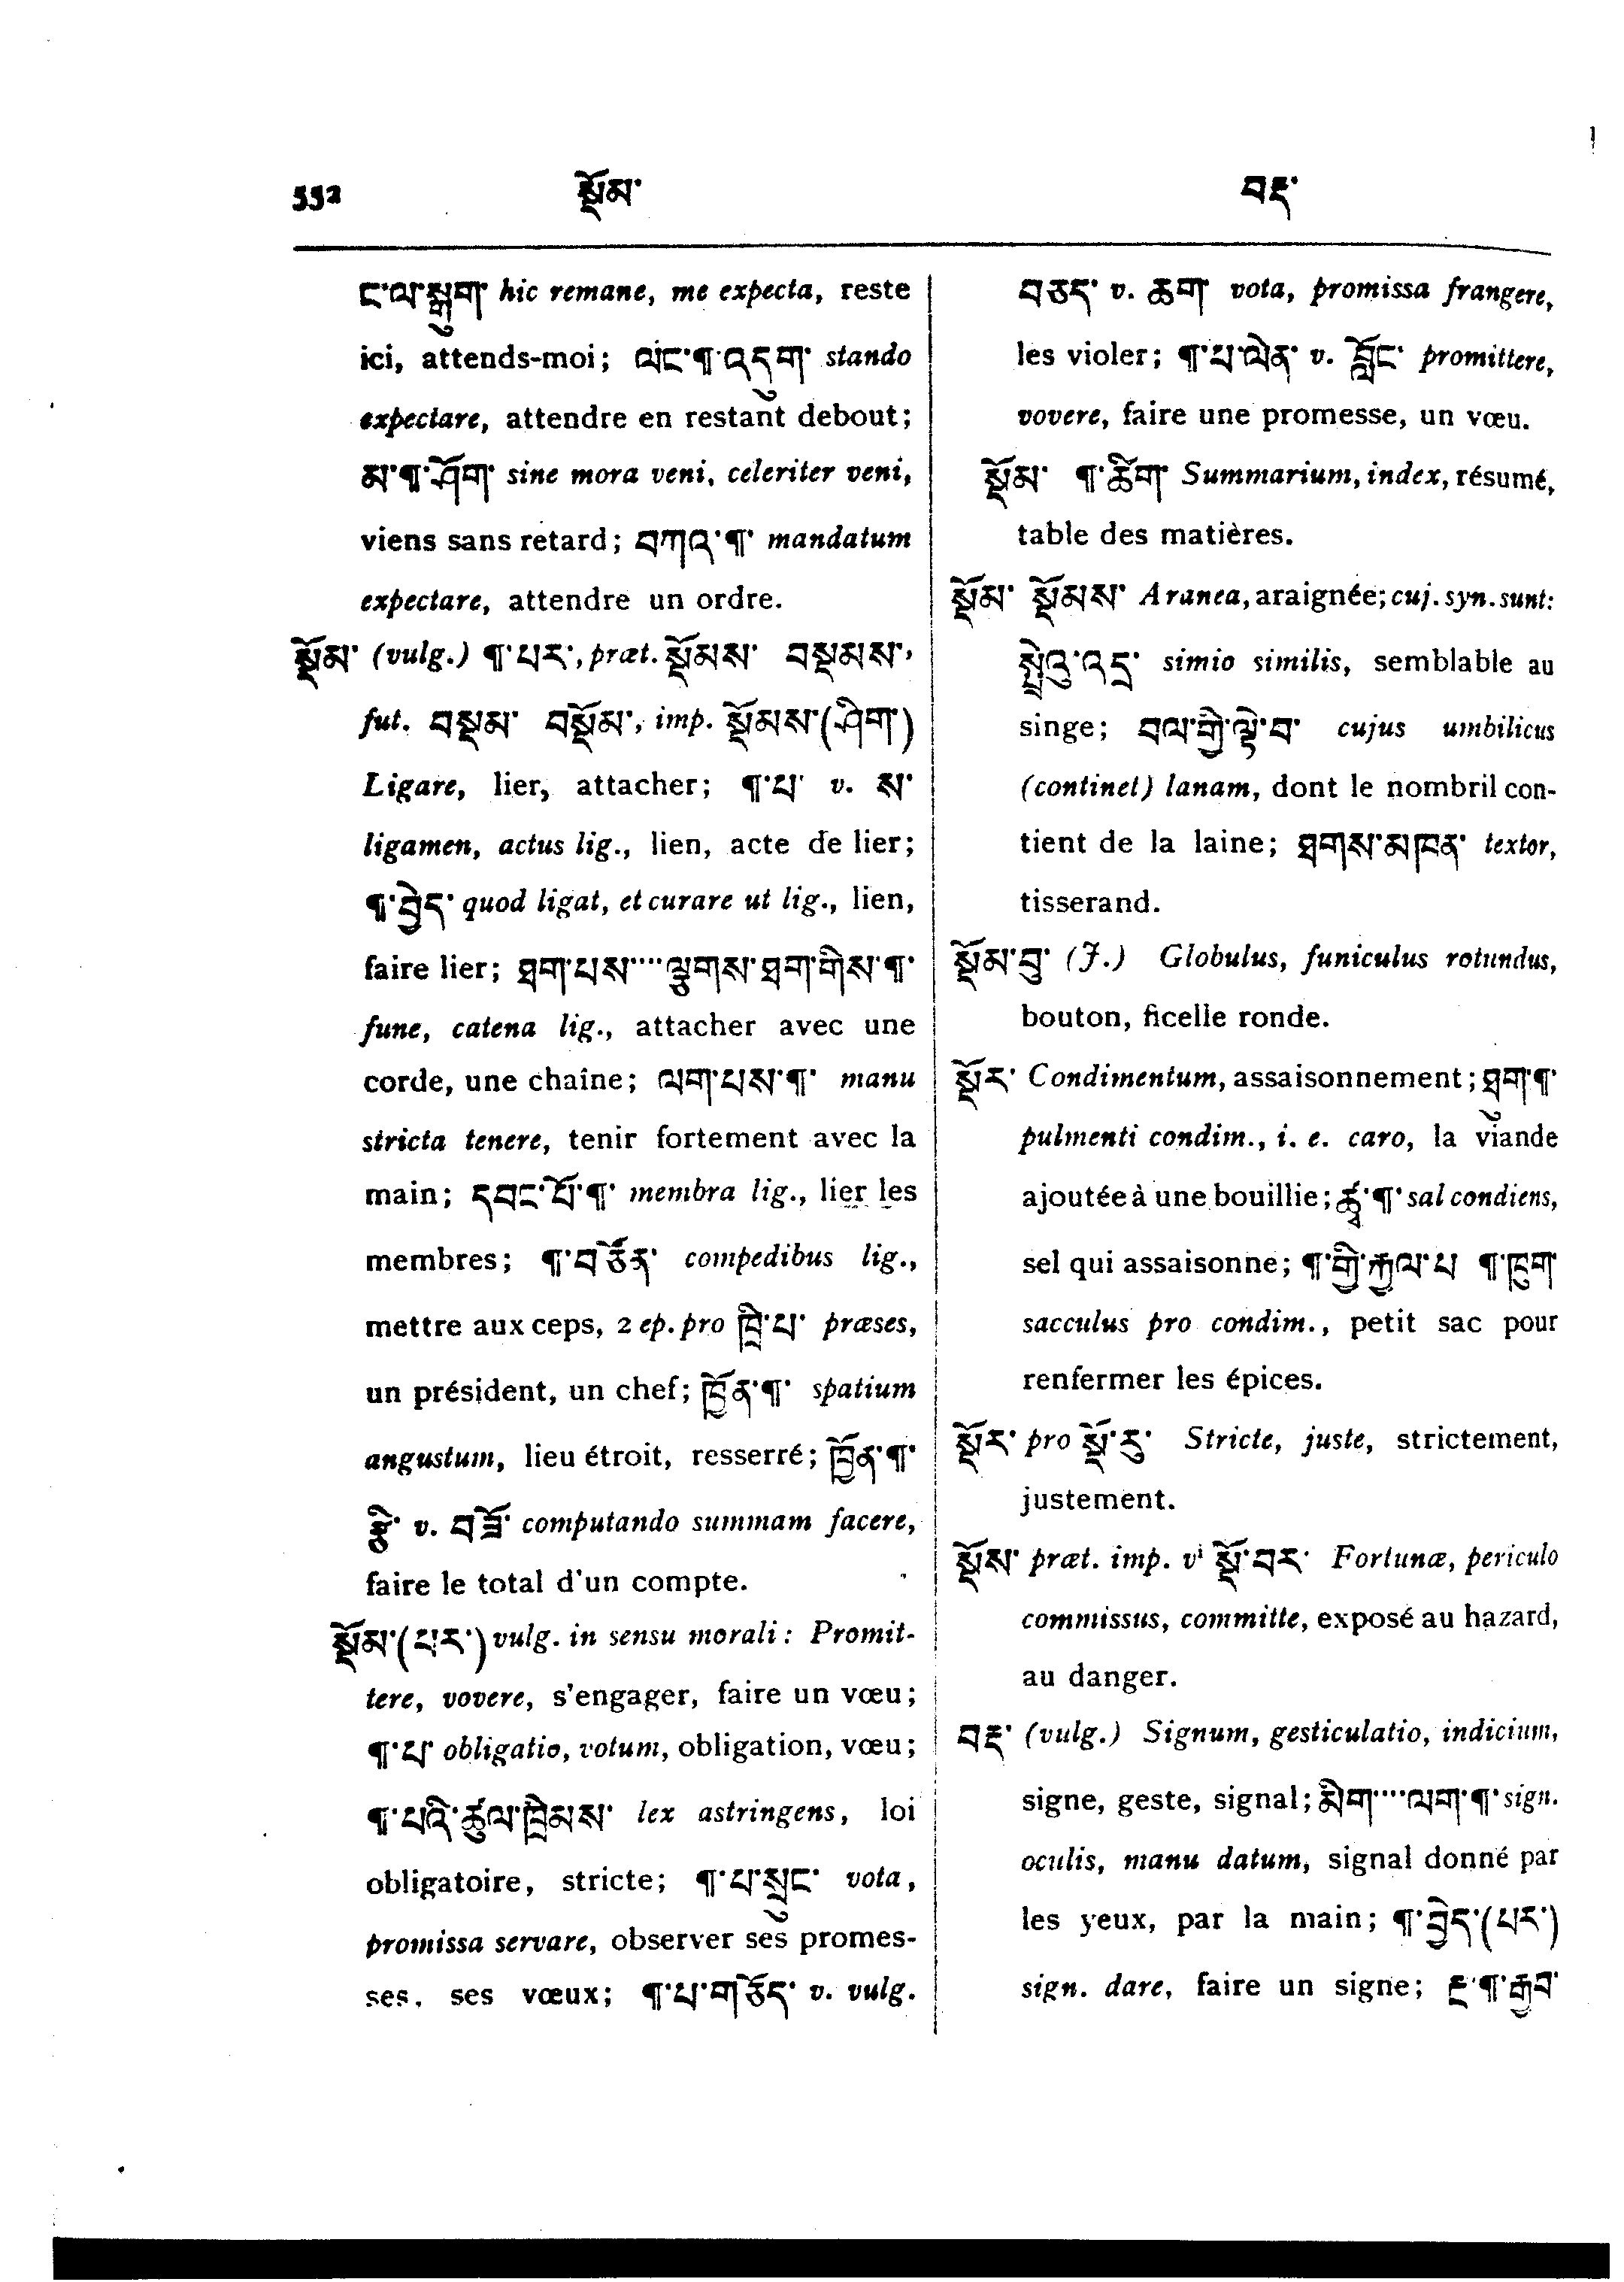 552
སྡོམ་
བརྡ་
ང་ལ་སྒུག་ hic remane, me expecta, reste
ici, attends-moi; ལང་¶་འདུག་ stando
expectare, attendre en restant debout;
མ་¶་ཤོག་ sine mora veni, celeriter veni,
viens sans retard; བཀའ་¶་ mandatum
expectare, attendre un ordre.
སྡོམ་ (vulg.) ¶་པར་, præt. སྡོམས་ བསྡམས་,
fut. བསྡམ་ བསྡོམ་, imp. སྡོམས་(ཤིག་)
Ligare, lier, attacher; ¶་པ་ v. ས་
ligamen, actus lig., lien, acte de lier;
¶་བྱེད་ quod ligat, et curare ut lig., lien,
faire lier; ཐག་པས་....ལྕགས་ཐག་གིས་¶་
fune, catena lig., attacher avec une
corde, une chaîne; ལག་པས་¶་ manu
stricta tenere, tenir fortement avec la
main; དབང་པོ་¶་ membra lig., lier les
membres; ¶་བཙོན་ compedibus lig.,
mettre aux ceps, 2 ep. pro ཁྲི་པ་ præses,
un président, un chef; ཁྱོན་¶་ spatium
angustum, lieu étroit, resserré; ཁྱོན་¶་
རྩི་ v. བཟོ་ computando summam facere,
faire le total d'un compte.
སྡོམ་(པར་) vulg. in sensu morali: Promit-
tere, vovere, s'engager, faire un vœu;
¶་པ་ obligatio, votum, obligation, vœu;
¶་པའི་ཚུལ་ཁྲིམས་ lex astringens, loi
obligatoire, stricte; ¶་པ་སྲུང་ vota,
promissa servare, observer ses promes-
ses, ses vœux; ¶་པ་གཅོད་ v. vulg.
བཅད་ v. ཆག་ vota, promissa frangere,
les violer; ¶་པ་ལེན་ v. བློང་ promittere,
vovere, faire une promesse, un vœu.
སྡོམ་ ¶་ཚིག་ Summarium, index, résumé,
table des matières.
སྡོམ་ སྡོམས་ Aranea, araignée; cuj. syn. sunt:
སྤྲེའུ་འདྲ་ simio similis, semblable au
singe; བལ་གྱི་ལྟེ་བ་ cujus umbilicus
(continet) lanam, dont le nombril con-
tient de la laine; ཐགས་མཁན་ textor,
tisserand.
སྡོམ་བུ་ (J.) Globulus, funiculus rotundus,
bouton, ficelle ronde.
སྡོར་ Condimentum, assaisonnement; ཐུག་¶་
pulmenti condim., i. e. caro, la viande
ajoutée à une bouillie; ཚྭ་¶་ sal condiens,
sel qui assaisonne; ¶་གྱི་རྐྱལ་པ ¶་ཁུག་
sacculus pro condim., petit sac pour
renfermer les épices.
སྡོར་ pro སྡོ་རུ་ Stricte, juste, strictement,
justement.
སྡོས་ præt. imp. vⁱ སྡོ་བར་ Fortunæ, periculo
commissus, committe, exposé au hazard,
au danger.
བརྡ་ (vulg.) Signum, gesticulatio, indicium,
signe, geste, signal; མིག་....ལག་¶་ sign.
oculis, manu datum, signal donné par
les yeux, par la main; ¶་བྱེད་(པར་)
sign. dare, faire un signe; རྡ་¶་རྒྱབ་